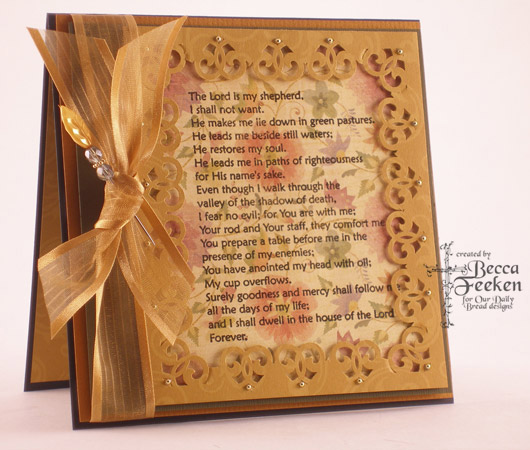 The Lord is my shepherd,
I shall not want.
He makes me lie down in green pastures,
He leads me beside still waters;
He restores my soul.
He leads me in paths of righteousness
for His name's sake.
Even though I walk through the
valley of the shadow of death,
I fear no evil; for You are with me;
Your rod and Your staff, they comfort me
You prepare a table before me in the
presence of my enemies;
You have anointed my head with oil;
My cup overflows.
Surely goodness and mercy shall follow me
all the days of my life;
and I shall dwell in the house of the Lord
Forever.
created by
Becca
Feeken
for Our Daily
Bread designs